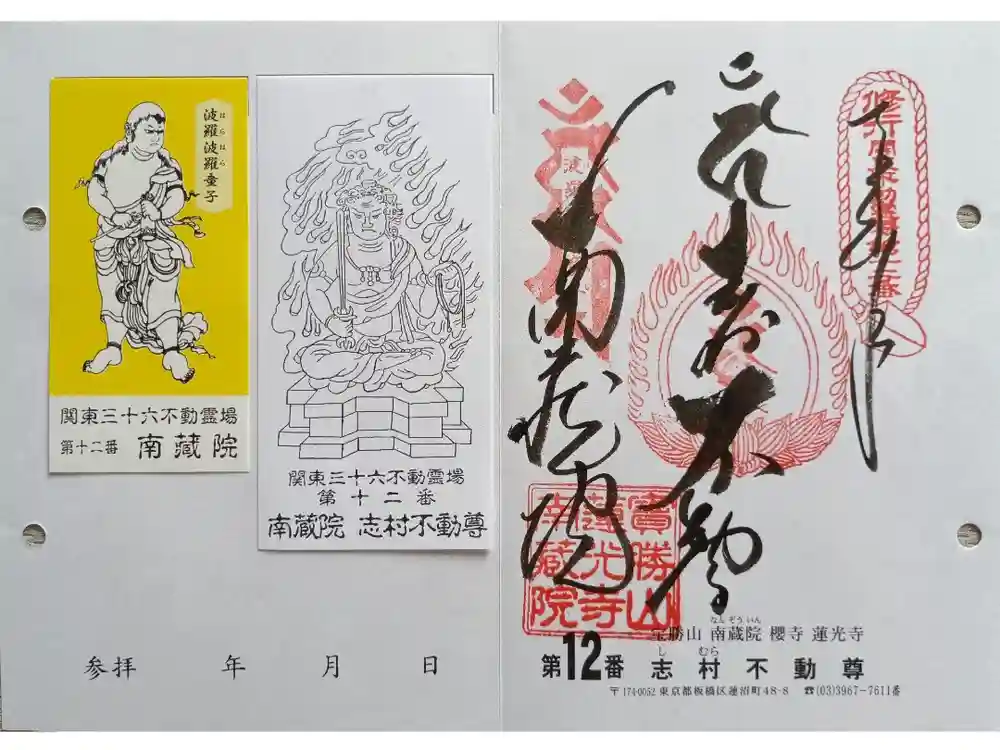 波羅波羅童子
はらはら
関東三十六不動霊場
第十二番 南蔵院
関東三十六不動霊場
第十二番
南蔵院 志村不動尊
参拝 年 月 日
南蔵院
寶勝山
蓮光寺
南蔵院
宝勝山 南蔵院 櫻寺 蓮光寺
なんぞういん
第12番 志村不動尊
しむら
〒174-0052 東京都板橋区蓮沼町48-8 ☎(03)3967-7611番